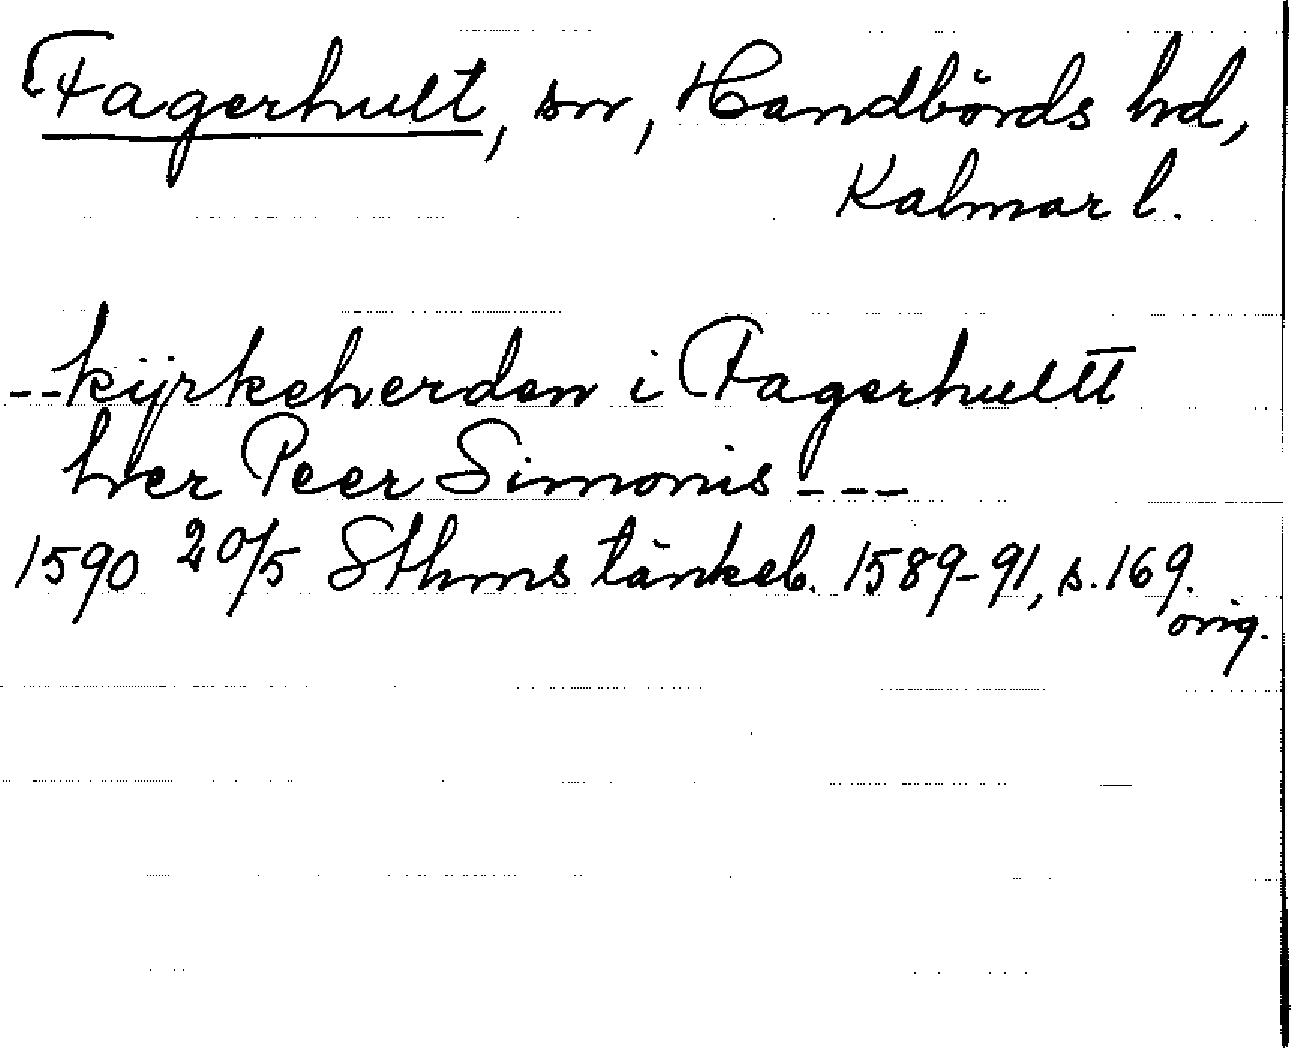 Fagerhult, sn, Handbörds hd,
Kalmar l.
--kijrkeherden i Fagerhultt
her Peer Simonis ---
1590 20/5 Sthms tänkeb. 1589-91, s. 169.
orig.